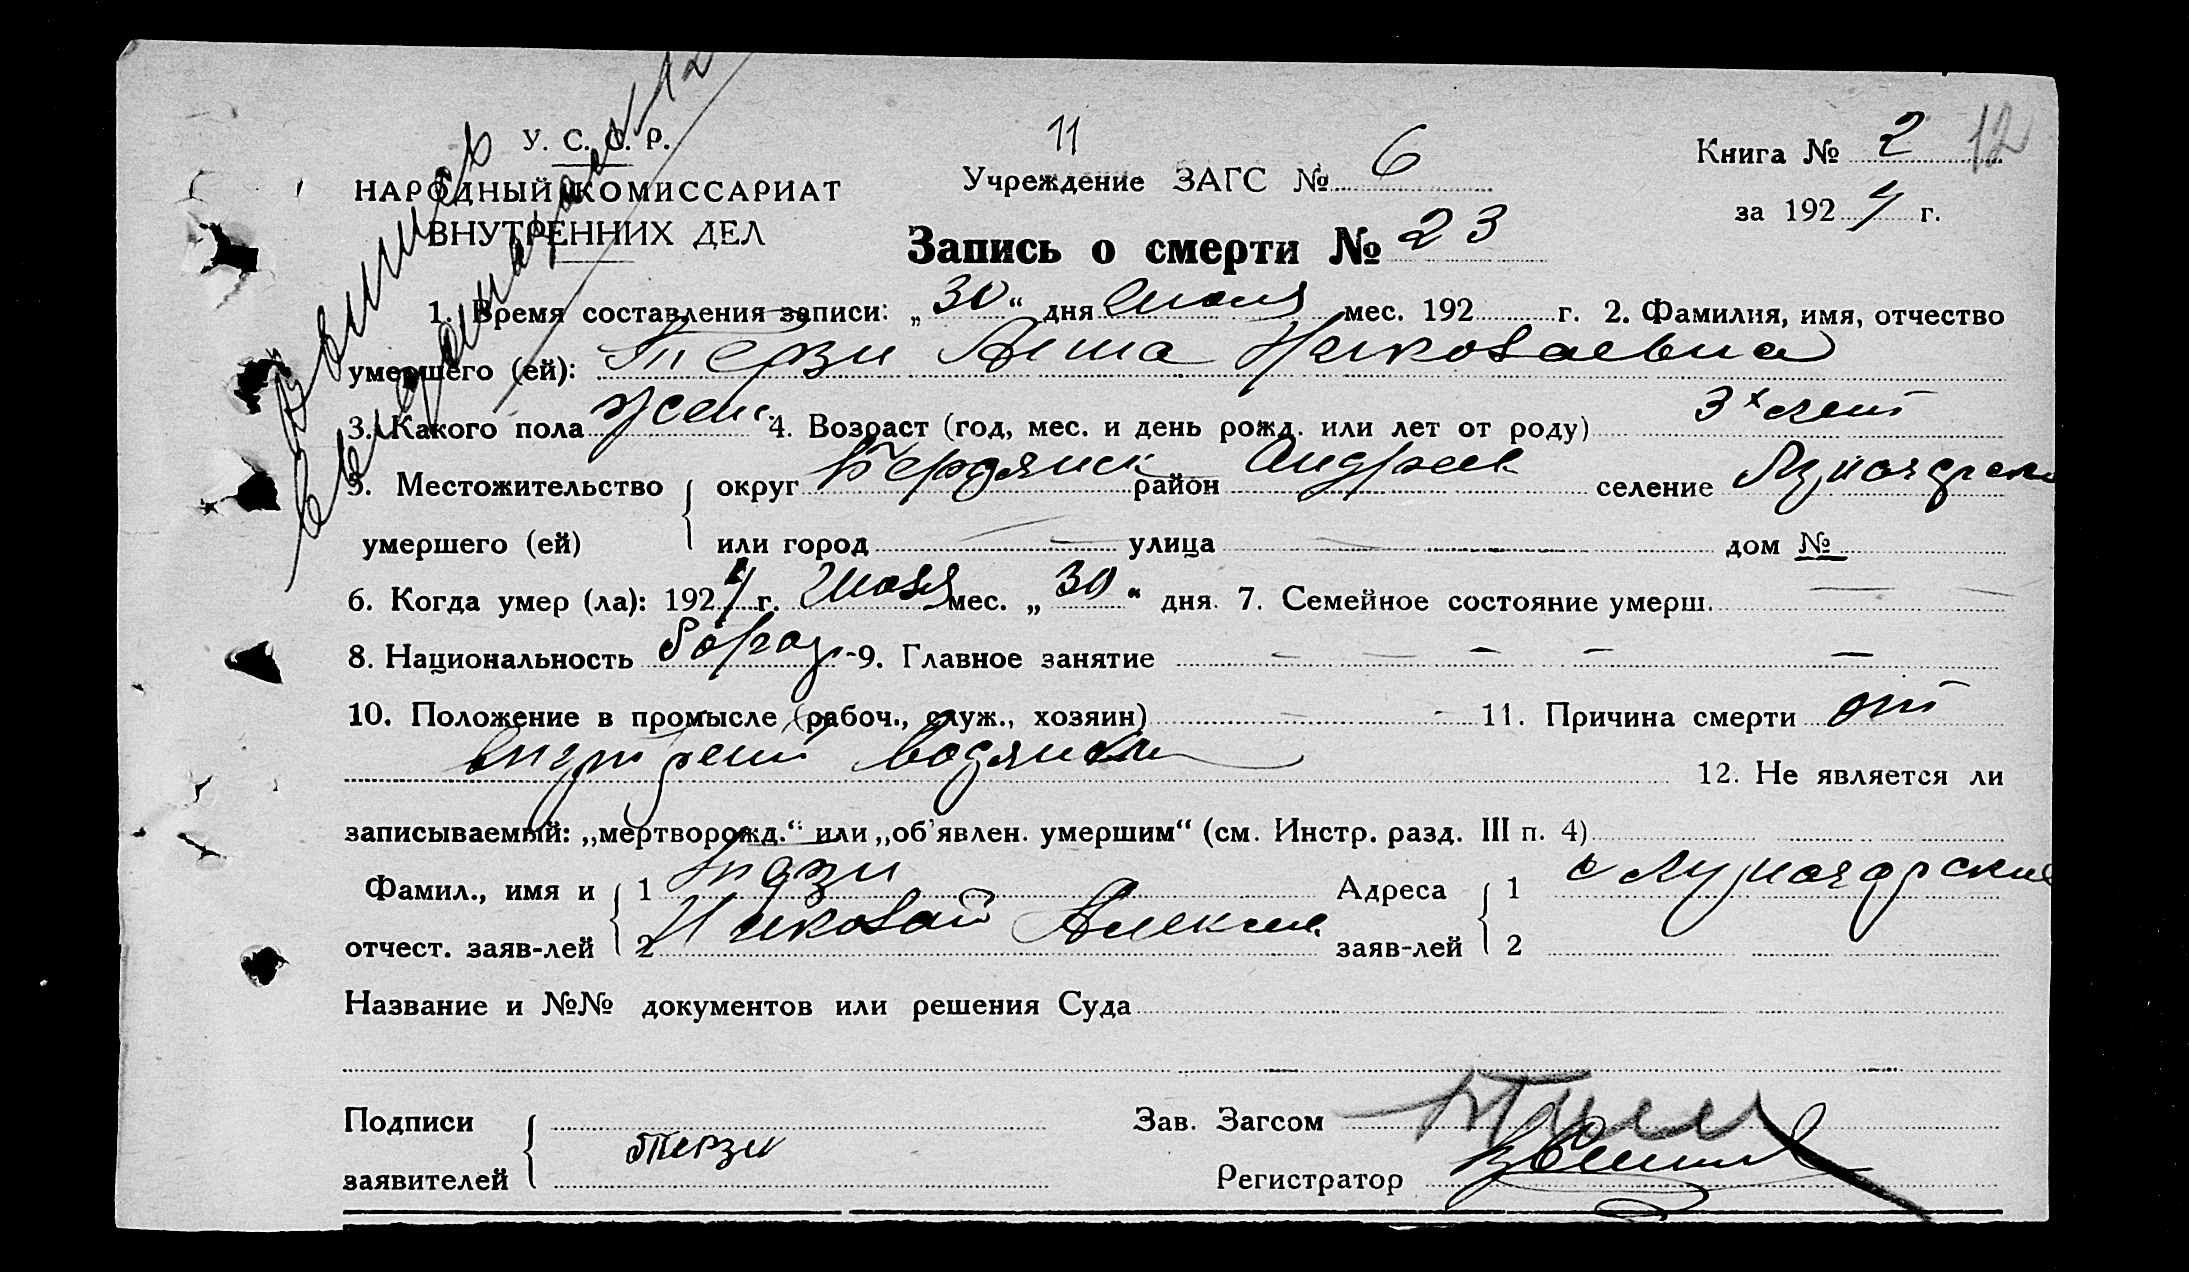 У. С. С. Р.
НАРОДНЫЙ КОМИССАРИАТ
ВНУТРЕННИХ ДЕЛ
11
Учреждение ЗАГС № 6
Книга № 2 12
за 1924 г.
Запись о смерти № 23
1. Время составления записи: „30“ дня Июля мес. 192 г. 2. Фамилия, имя, отчество
умершего (ей): Терзи Анна Николаевна
3. Какого пола жен. 4. Возраст (год, мес. и день рожд. или лет от роду) 3х лет
5. Местожительство округ Бердянск район Андреев селение Луначарск
умершего (ей) или город — улица — дом №
6. Когда умер (ла): 1924 г. Июля мес. „30“ дня. 7. Семейное состояние умерш. — —
8. Национальность 9. Главное занятие — — — — —
10. Положение в промысле (рабоч., служ., хозяин) — - 11. Причина смерти от
внутрен водянки 12. Не является ли
записываемый: „мертворожд.“ или „об'явлен. умершим“ (см. Инстр. разд. III п. 4)
Фамил., имя и 1 Адреса 1 с Луначарское
отчест. заяв-лей 2 Николай Алексеев. заяв-лей 2
Название и №№ документов или решения Суда
Подписи Зав. Загсом
заявителей Терзи Регистратор